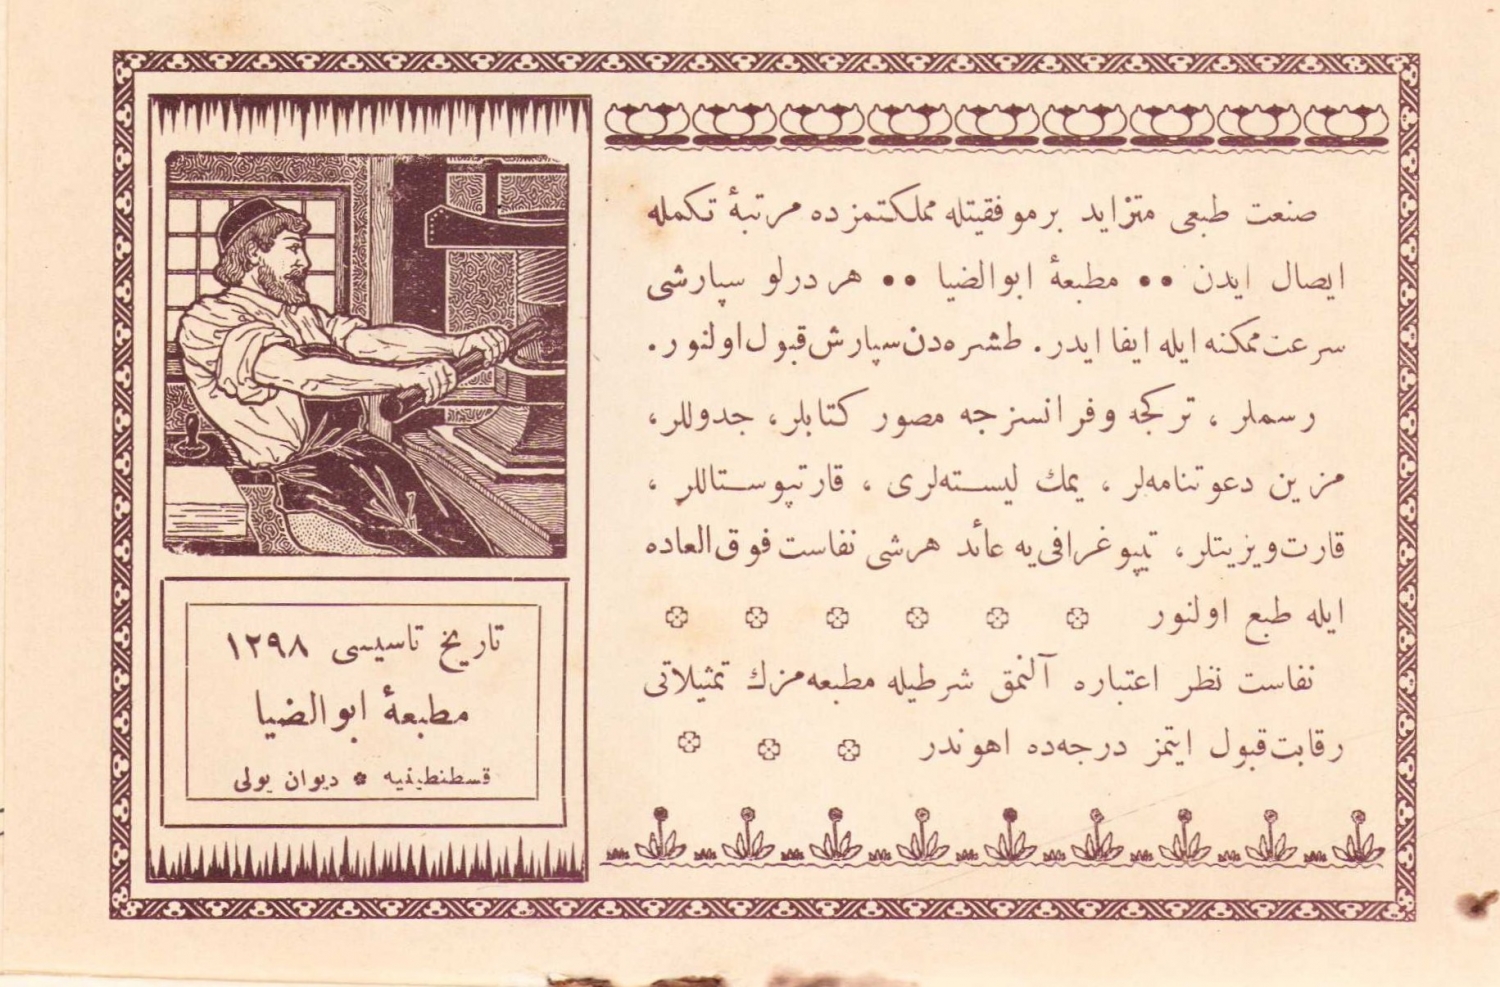 صنعت طبعی متزاید بر موفقیتله مملکتمزده مرتبهٔ تکمله
ایصال ایدن •• مطبعهٔ ابوالضیا •• هر درلو سپارشی
سرعت ممکنه ایله ایفا ایدر. طشره‌دن سپارش قبول اولنور.
رسملر ، ترکجه و فرانسزجه مصور کتابلر، جدوللر،
مزین دعوتنامه‌لر ، یمك لیسته‌لری ، قارتپوستاللر ،
قارت‌ویزیتلر، تیپوغرافی‌یه عائد هرشی نفاست فوق‌العاده
ایله طبع اولنور
نفاست نظر اعتباره آلنمق شرطیله مطبعه‌مزك تمثیلاتی
رقابت قبول ایتمز درجه‌ده اهوندر
تاریخ تاسیسی ١٢٩٨
مطبعهٔ ابوالضیا
قسطنطینیه * دیوان یولی